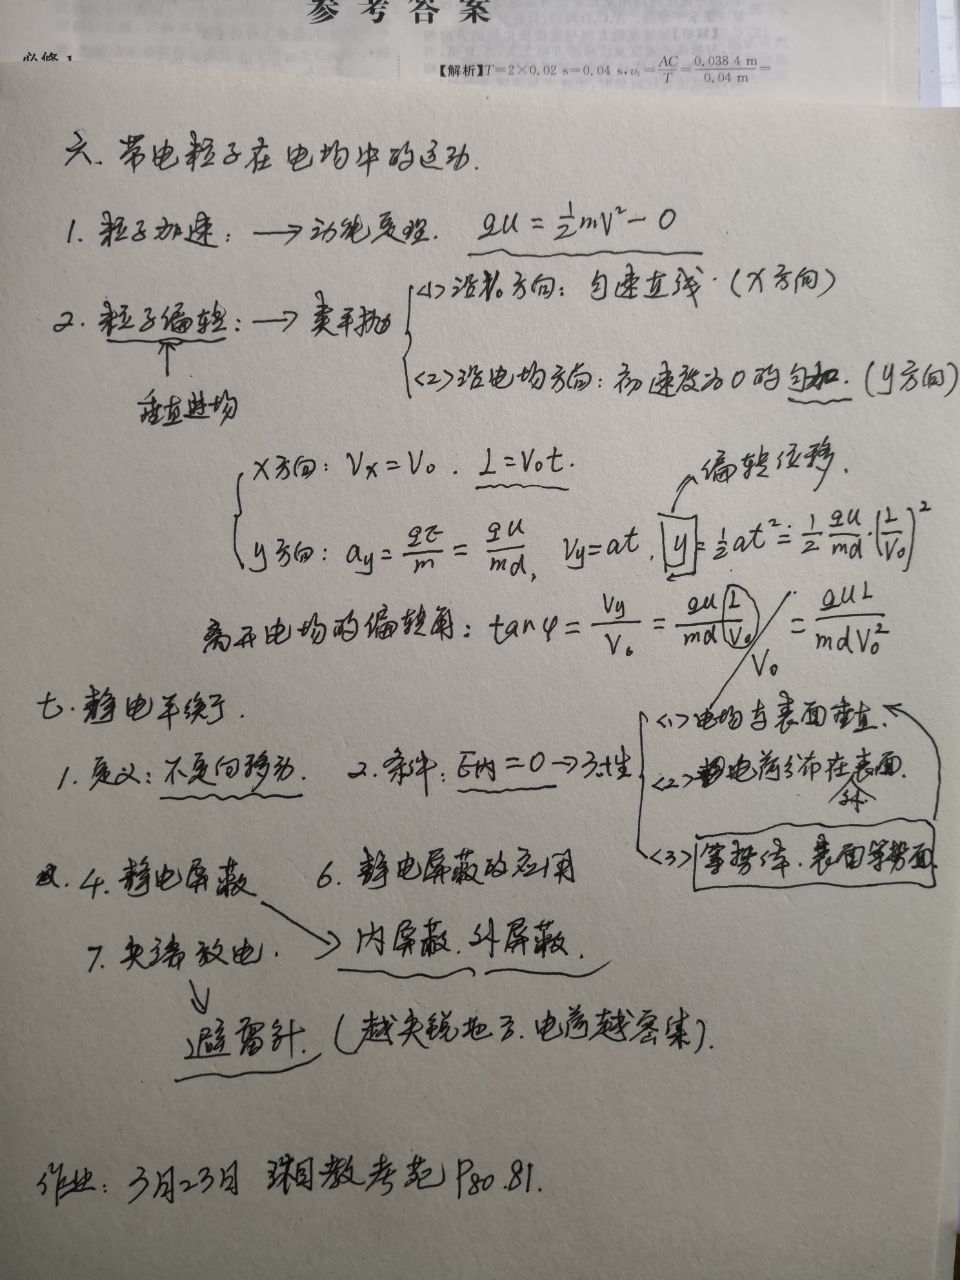 参考答案
必修1
【解析】T=2×0.02 s=0.04 s,v₁=AC/T=0.038 4 m/0.04 m=
六. 带电粒子在电场中的运动.
1. 粒子加速: → 动能定理. qU = ½mV² - 0
2. 粒子偏转: → 类平抛
<1>沿V₀方向: 匀速直线. (x方向)
<2>沿电场方向: 初速度为0的匀加. (y方向)
垂直进场
x方向: Vx=V₀. L=V₀t.
偏转位移.
y方向: ay=qE/m=qU/md, Vy=at. y=½at²=½·qU/md·(L/V₀)²
离开电场的偏转角: tanφ=Vy/V₀=qU L/md V₀/V₀=qUL/mdV₀²
七. 静电平衡.
<1>电场与表面垂直.
1. 定义: 不定向移动. 2. 条件: E内=0→3.特性
<2>电荷分布在外表面.
<3>等势体. 表面等势面
4. 静电屏蔽 6. 静电屏蔽的应用
7. 尖端放电. 内屏蔽. 外屏蔽.
避雷针. (越尖锐地方. 电荷越密集).
作业: 3月23日 教考 P80.81.